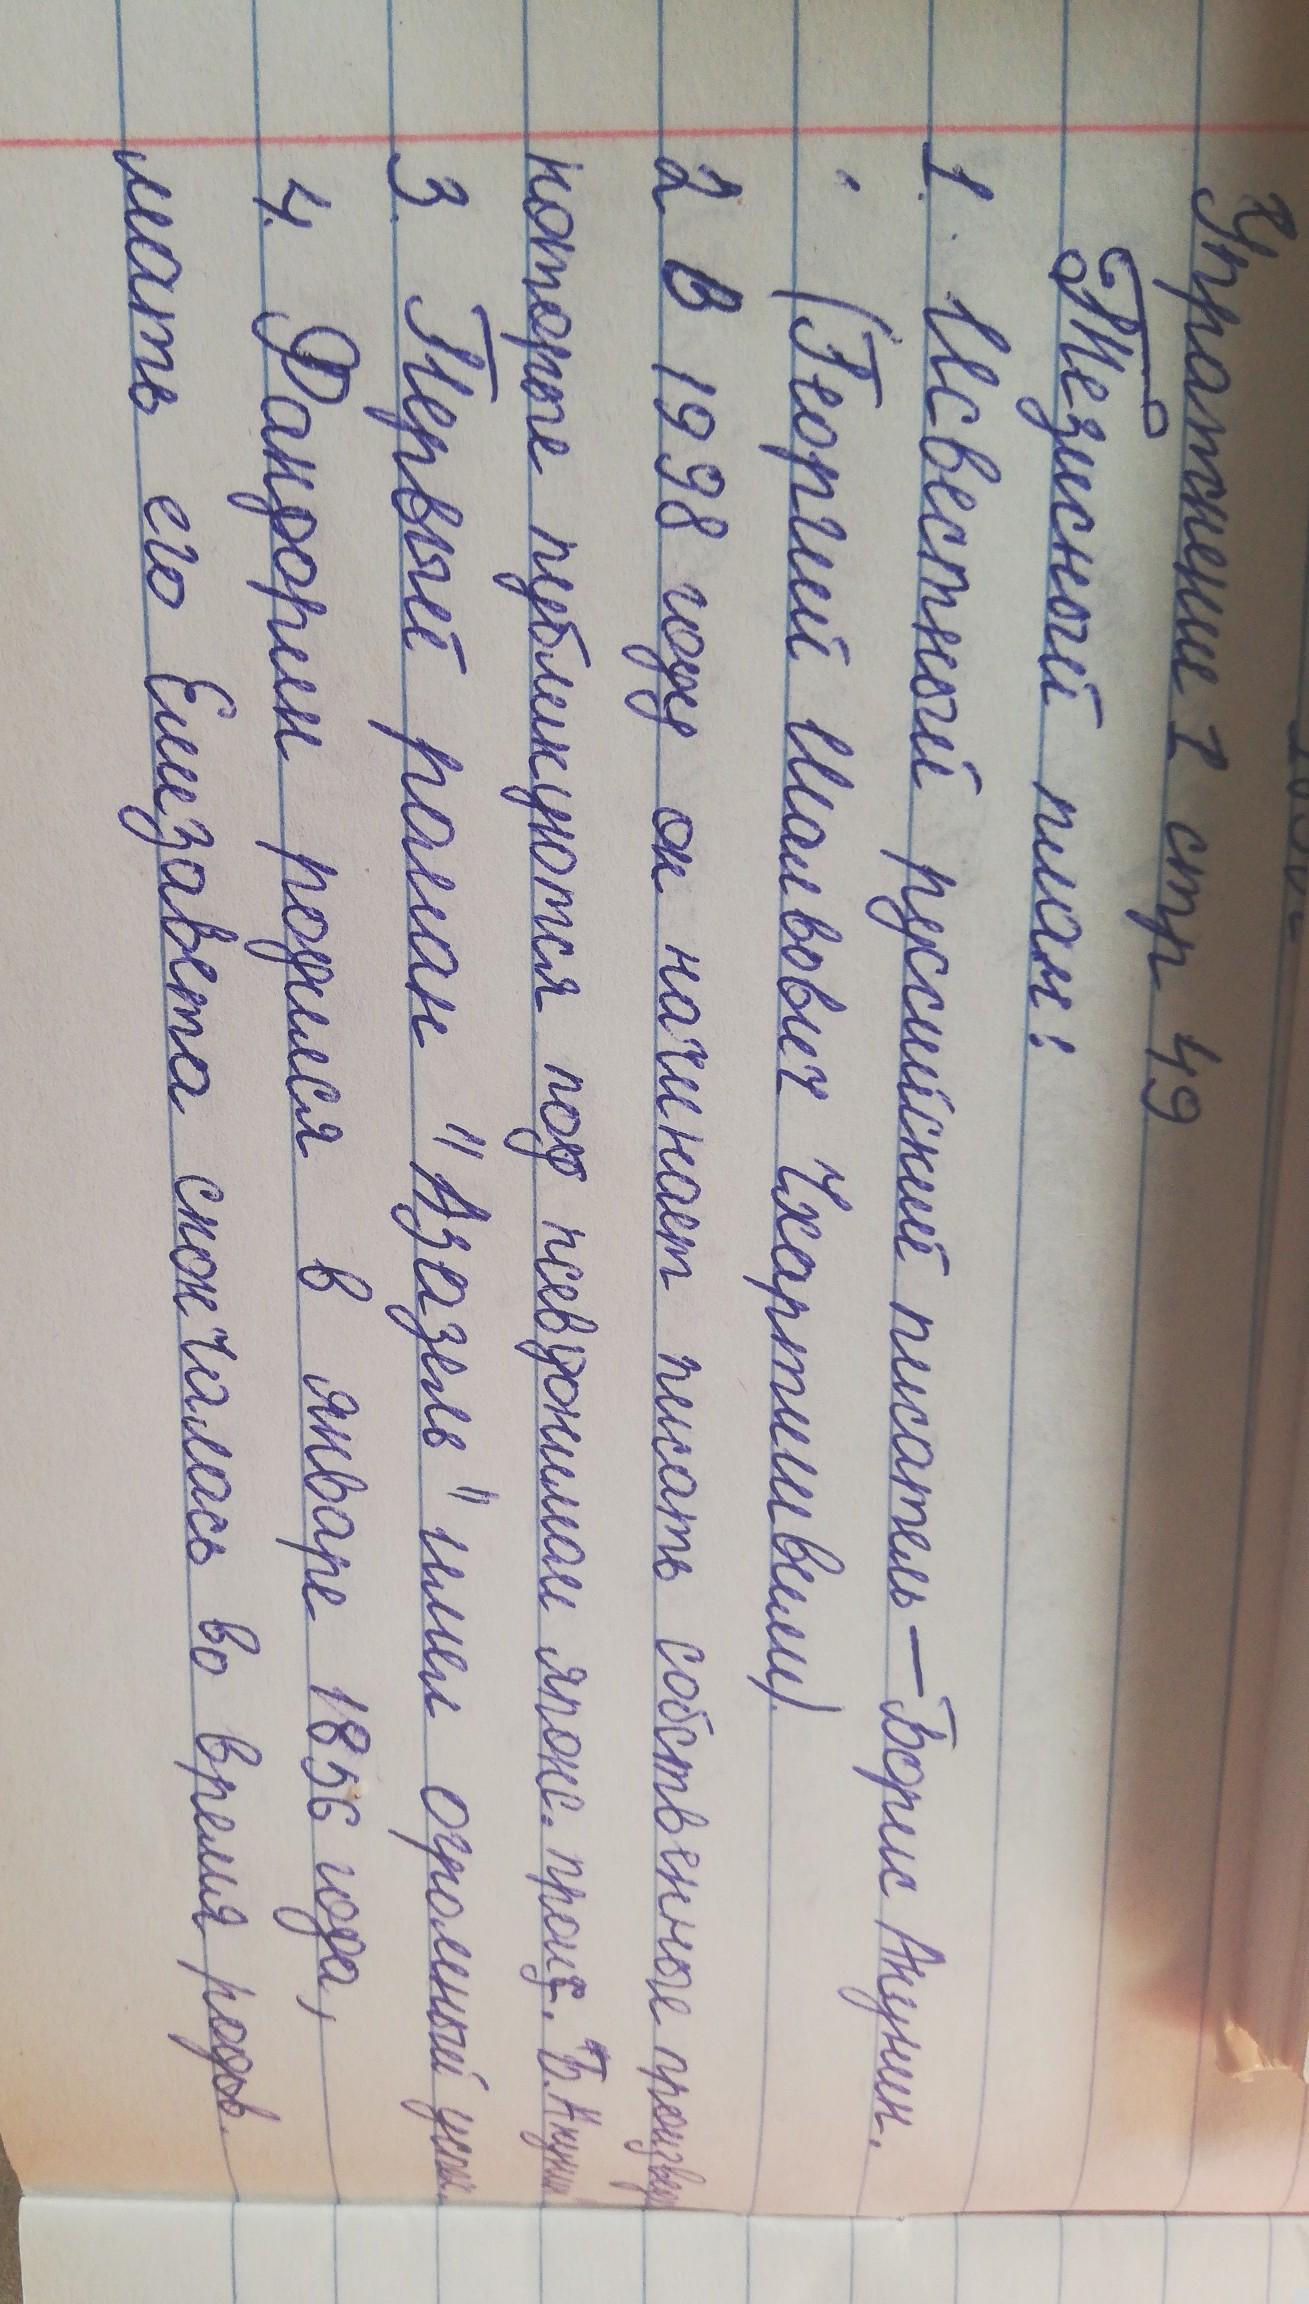 Упражнение 1 стр 49
Тезисный план:
1. Исвестный руссийский писатель — Борис Акунин.
(Георгий Шальвович Чхартишвили)
2 В 1998 году он начинает писать собственные произвед
которые публикуются под псевдонимам японс. проиs. Б. Акунин
3. Первый роман "Азазель" имел огромный успех.
4. Фандорин родился в январе 1856 года,
мать его Елизавета скончалась во время родов.